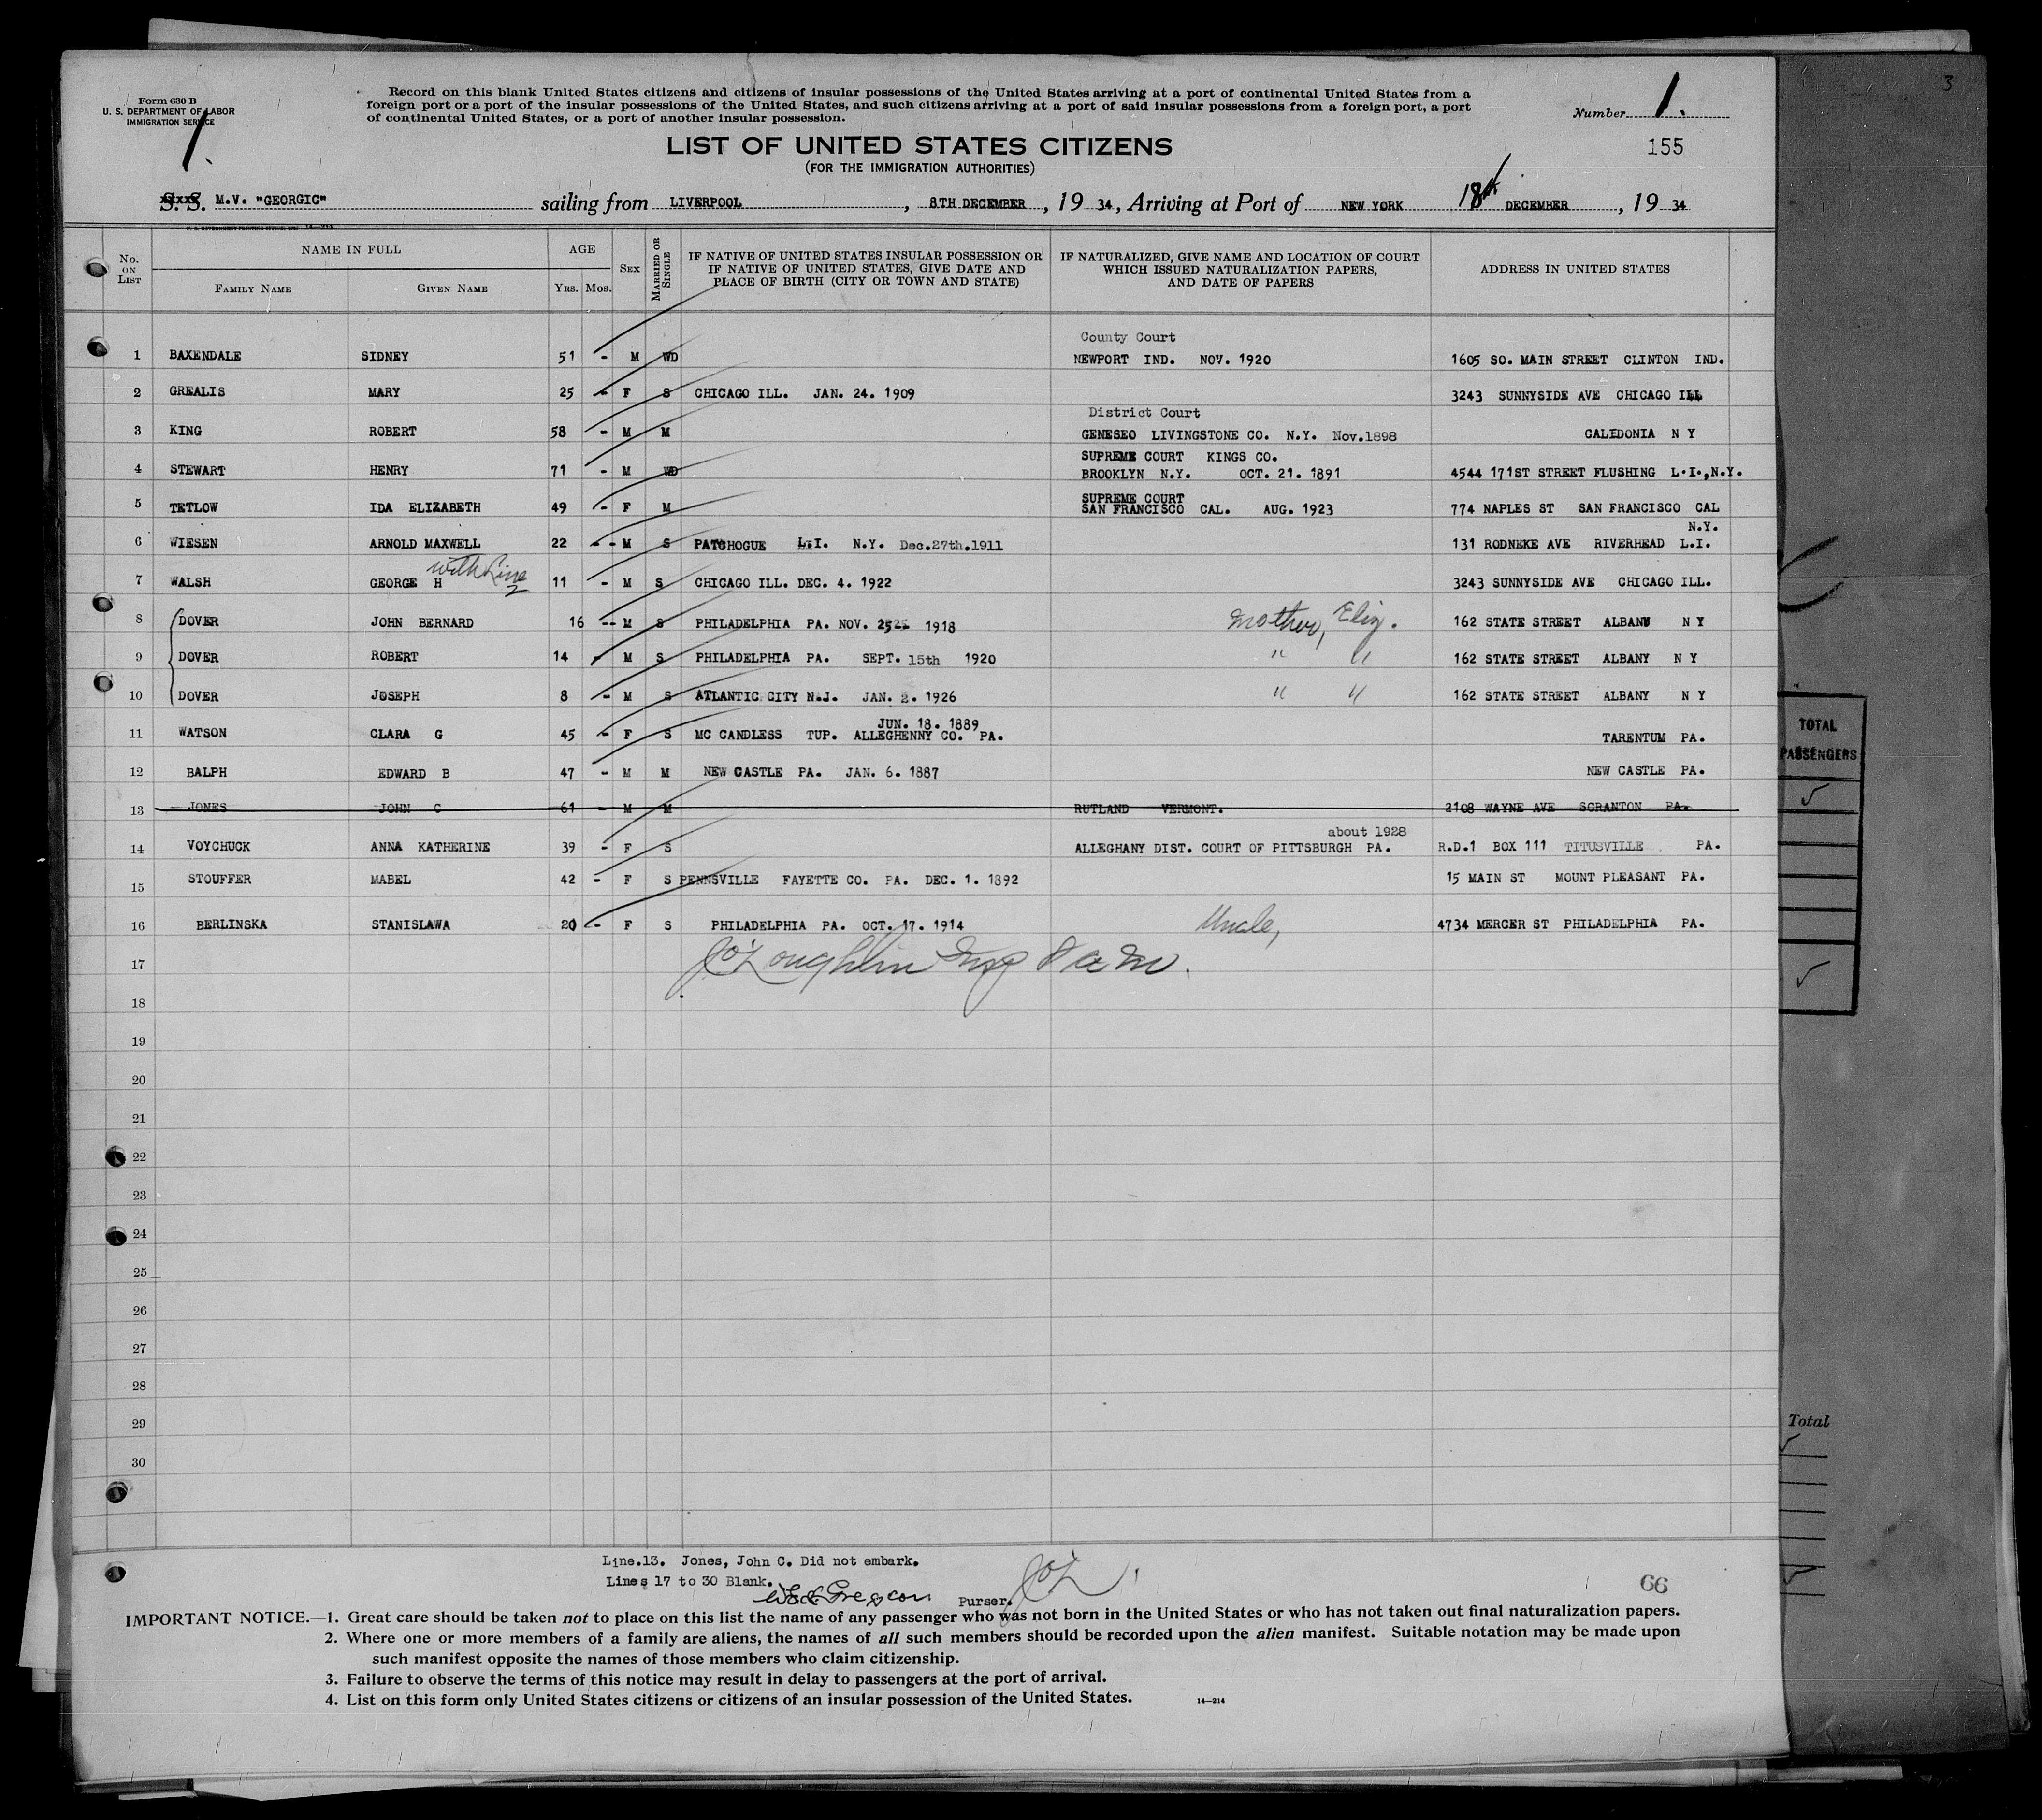 3
Form 630 B
U. S. DEPARTMENT OF LABOR
IMMIGRATION SERVICE
1.
Record on this blank United States citizens and citizens of insular possessions of the United States arriving at a port of continental United States from a
foreign port or a port of the insular possessions of the United States, and such citizens arriving at a port of said insular possessions from a foreign port, a port
of continental United States, or a port of another insular possession.
Number 1.
155
LIST OF UNITED STATES CITIZENS
(FOR THE IMMIGRATION AUTHORITIES)
S. S. M.V. "GEORGIC" sailing from LIVERPOOL, 8TH DECEMBER, 19 34, Arriving at Port of NEW YORK 18th DECEMBER, 19 34
14-214
No. ON LIST NAME IN FULL FAMILY NAME GIVEN NAME AGE YRS. MOS. SEX MARRIED OR SINGLE IF NATIVE OF UNITED STATES INSULAR POSSESSION OR IF NATIVE OF UNITED STATES, GIVE DATE AND PLACE OF BIRTH (CITY OR TOWN AND STATE) IF NATURALIZED, GIVE NAME AND LOCATION OF COURT WHICH ISSUED NATURALIZATION PAPERS, AND DATE OF PAPERS ADDRESS IN UNITED STATES
County Court
1 BAXENDALE SIDNEY 51 - M WD NEWPORT IND. NOV. 1920 1605 SO. MAIN STREET CLINTON IND.
2 GREALIS MARY 25 - F S CHICAGO ILL. JAN. 24. 1909 3243 SUNNYSIDE AVE CHICAGO ILL
District Court
3 KING ROBERT 58 - M M GENESEO LIVINGSTONE CO. N.Y. Nov.1898 CALEDONIA N Y
SUPREME COURT KINGS CO.
4 STEWART HENRY 71 - M WD BROOKLYN N.Y. OCT. 21. 1891 4544 171ST STREET FLUSHING L.I.,N.Y.
SUPREME COURT
5 TETLOW IDA ELIZABETH 49 - F M SAN FRANCISCO CAL. AUG. 1923 774 NAPLES ST SAN FRANCISCO CAL
N.Y.
6 WIESEN ARNOLD MAXWELL 22 - - M S PATCHOGUE L.I. N.Y. Dec.27th.1911 131 RODNEKE AVE RIVERHEAD L.I.
with Line 2
7 WALSH GEORGE H 11 - M S CHICAGO ILL. DEC. 4. 1922 3243 SUNNYSIDE AVE CHICAGO ILL.
8 DOVER JOHN BERNARD 16 -- M S PHILADELPHIA PA. NOV. 25 1918 Mother, Eliz. 162 STATE STREET ALBANY N Y
9 DOVER ROBERT 14 - M S PHILADELPHIA PA. SEPT. 15th 1920 " " 162 STATE STREET ALBANY N Y
10 DOVER JOSEPH 8 - M S ATLANTIC CITY N.J. JAN. 2. 1926 " " 162 STATE STREET ALBANY N Y
JUN. 18. 1889
11 WATSON CLARA G 45 - F S MC CANDLESS TUP. ALLEGHENNY CO. PA. TARENTUM PA.
12 BALPH EDWARD B 47 - M M NEW CASTLE PA. JAN. 6. 1887 NEW CASTLE PA.
13 JONES JOHN C 61 - M M RUTLAND VERMONT. 2108 WAYNE AVE SCRANTON PA.
about 1928
14 VOYCHUCK ANNA KATHERINE 39 - F S ALLEGHANY DIST. COURT OF PITTSBURGH PA. R.D.1 BOX 111 TITUSVILLE PA.
15 STOUFFER MABEL 42 - F S PENNSVILLE FAYETTE CO. PA. DEC. 1. 1892 15 MAIN ST MOUNT PLEASANT PA.
16 BERLINSKA STANISLAWA 20 - F S PHILADELPHIA PA. OCT. 17. 1914 Uncle, 4734 MERCER ST PHILADELPHIA PA.
17 J O'Loughlin
18
19
20
21
22
23
24
25
26
27
28
29
30
TOTAL
PASSENGERS
Total
Line.13. Jones, John C. Did not embark.
Lines 17 to 30 Blank.
Purser. JO'L
66
IMPORTANT NOTICE.—1. Great care should be taken not to place on this list the name of any passenger who was not born in the United States or who has not taken out final naturalization papers.
2. Where one or more members of a family are aliens, the names of all such members should be recorded upon the alien manifest. Suitable notation may be made upon
such manifest opposite the names of those members who claim citizenship.
3. Failure to observe the terms of this notice may result in delay to passengers at the port of arrival.
4. List on this form only United States citizens or citizens of an insular possession of the United States.
14—214